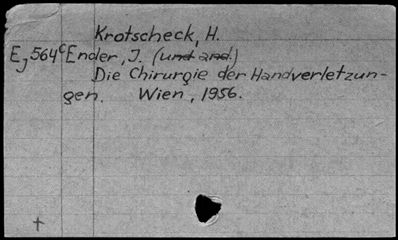 Krotscheck, H.
EJ 564c Ender, J. (und and.)
Die Chirurgie der Handverletzun-
gen. Wien, 1956.